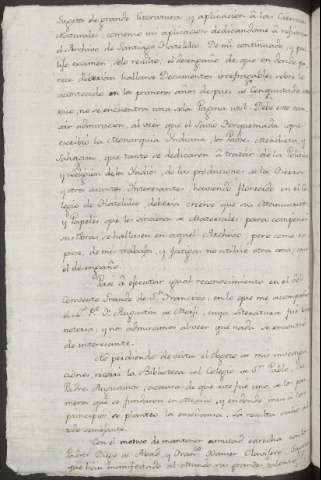 Sujeto de grande literatura y aplicacion à las Ciencias
Naturales, comence mi aplicacion dedicandome à
el Archivo de Santiago Tlatelolco. De mi continuado, y
examen solo recibo, el desengaño de que en donde
rece debian hallarse Documentos irrefragables sobre lo
acontecido en los primeros años despues de conquistado
xico, no se encuentra una sola Pagina util. Debe esto
sar admiracion, al vèr que el Sabio Torquemada que
escribió la Monarquia Indiana, los Padres Mendieta, y
Sahagun, que tanto se dedicaron à tratar de la Politica
y religion de los Indios, de las producciones de la Tierra,
y otros asuntos interesantes, haviendo florecido en el Co
legio de Tlatelolco deberia creerse que los Monumentos
y Papeles que les sirvieron de Materiales para componer
sus obras, se hallasen en aquel Archivo, pero como
puse, de mi trabajo, y fatiga no utilice otra cosa, que
el desengaño.
Pasè à ejecutar igual reconocimiento en el
Convento Grande de Sn. Francisco, en lo que me acompañó
el Pe. Dr. Augustin de Morfi, cuya literatura fue
notoria, y nos admiramos al vèr que nada se encontró
de interesante.
No perdiendo de vista el objeto de mis investiga
ciones, visitè la Biblioteca del Colegio de Sn. Pablo, de
Padres Augustinos, acausa de que este fue uno de los pri
meros que se fundaron en Mexico, y en donde mui à los
principios se planteó la enseñanza. La resulta
do semejante.
Con el motivo de mantener amistad estrecha con los
Padres Diego de Abad, y Franco. Xavier Clavijero,
que han manifestado al mundo sus grandes talentos